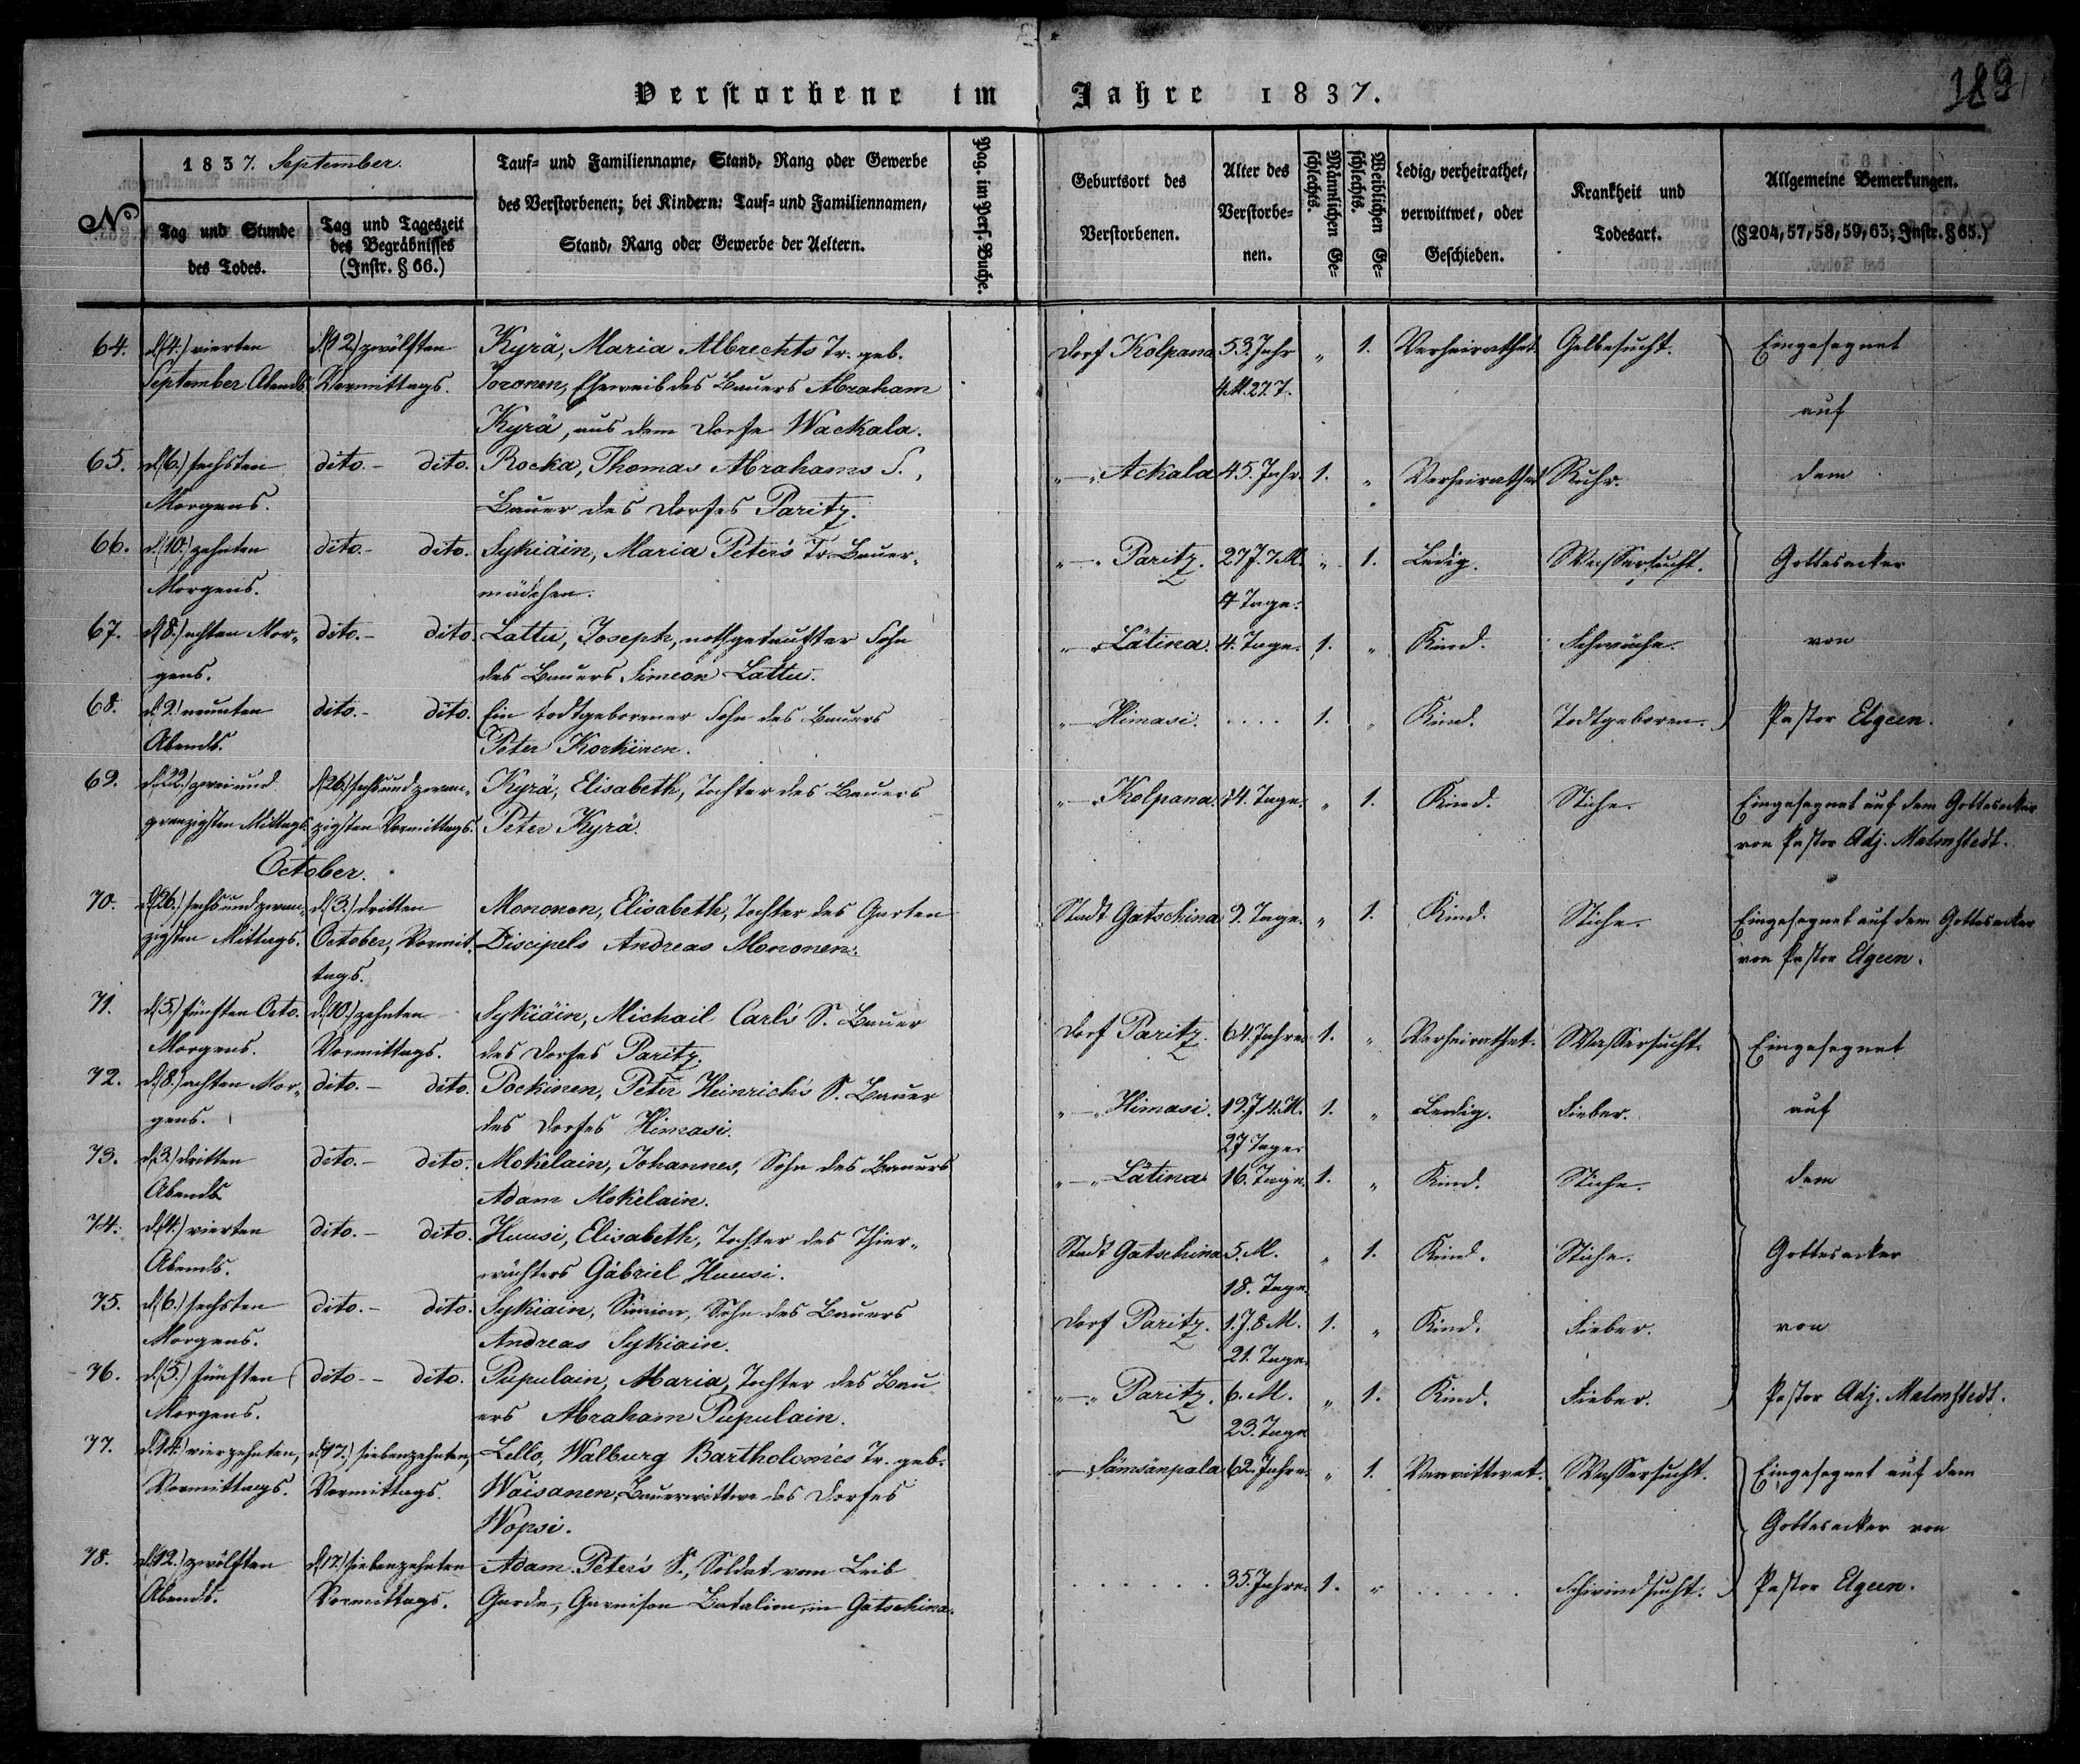 Verstorbene im Jahre 1837.
189
1837. September.
No
Tag und Stunde des Todes.
Tag und Tageszeit des Begräbnisses (Instr. § 66.)
Tauf- und Familienname, Stand, Rang oder Gewerbe
des Verstorbenen; bei Kindern: Tauf- und Familiennamen,
Stand, Rang oder Gewerbe der Aeltern.
Pag. im Pers. Buche.
Geburtsort des Verstorbenen.
Alter des Verstorbenen.
Männlichen Geschlechts.
Weiblichen Geschlechts.
Ledig, verheirathet, verwittwet, oder Geschieden.
Krankheit und Todesart.
Allgemeine Bemerkungen.
(§ 204, 57, 58, 59, 63; Instr. § 65.)
64. d. (4.) vierten d. (12.) zwölften Kyrä, Maria Albrechts Tr. geb. Dorf Kolpana 53. Jahr „ 1. Verheirathet Gelbesucht. Eingesegnet
September Abends Vormittags. Toronen, Eheweib des Bauers Abraham 4. M. 27 T. auf
Kyrä, aus dem Dorfe Wackala.
65. d. (6.) sechsten dito.- dito. Rocka, Thomas Abrahams S., „—„ Ackala 45. Jahr. 1. „ Verheirathet Ruhr. dem
Morgens. Bauer des Dorfes Paritz.
66. d. (10.) zehnten dito.- dito. Sykiäin, Maria Peter's Tr. Bauer- „—„ Paritz. 27 J. 7 M. „ 1. Ledig. Wassersucht. Gottesacker
Morgens. mädchen. 4 Tage.
67. d. (8.) achten Mor- dito.- dito. Lattu, Joseph, nothgetaufter Sohn „—„ Lätina. 4. Tage. 1. „ Kind. Schwäche. von
gens. des Bauers Simeon Lattu.
68. d. 9.) neunten dito.- dito. Ein todtgeborener Sohn des Bauers „— Himasi. .... 1. „ Kind. Todtgeboren. Pastor Elgeen.
Abends. Peter Korkinen.
69. d. (22.) zweiund d. (26.) sechsundzwan- Kyrä, Elisabeth, Tochter des Bauers „—„ Kolpana. 14. Tage. „ 1. Kind. Stiche. Eingesegnet auf dem Gottesacker
zwanzigsten Mittags. zigsten Vormittags. Peter Kyrä. von Pastor Adj. Malmstedt.
October.
70. d. (26.) sechsundzwan- d. (3.) dritten Mononen, Elisabeth, Tochter des Garten Stadt Gatschina 9. Tage. „ 1. Kind. Stiche. Eingesegnet auf dem Gottesacker
zigsten Mittags. October, Vormit- Discipels Andreas Mononen. von Pastor Elgeen.
tags.
71. d. (5.) fünften Octo. d. (10.) zehnten Sykiäin, Michail Carls S. Bauer Dorf Paritz. 64. Jahre. 1. „ Verheirathet. Wassersucht. Eingesegnet
Morgens. Vormittags. des Dorfes Paritz.
72. d. (8.) achten Mor- dito.- dito. Pockinen, Peter Heinrich's S. Bauer „—„ Himasi. 19. J. 4. M. 1. „ Ledig. Fieber. auf
gens. des Dorfes Himasi. 27 Tage.
73. d. 3.) dritten dito.- dito. Mokelain, Johannes, Sohn des Bauers „—„ Lätina 16. Tage. 1. „ Kind. Stiche. dem
Abends Adam Mokelain.
74. d. (4.) vierten dito.- dito. Huusi, Elisabeth, Tochter des Thier- Stadt Gatschina 5. M. „ 1. Kind. Stiche. Gottesacker
Abends. wächters Gabriel Huusi. 18. Tage.
75. d. (6.) sechsten dito.- dito. Sykiain, Simion, Sohn des Bauers Dorf Paritz. 1. J. 8 M. 1. „ Kind. Fieber. von
Morgens. Andreas Sykiain. 21. Tage.
76. d. (5.) fünften dito.- dito. Pupulain, Maria, Tochter des Bau- „—„ Paritz. 6. M. „ 1. Kind. Fieber. Pastor Adj. Malmstedt.
Morgens. ers Abraham Pupulain. 23. Tage
77. d. 14.) vierzehnten, d. (17.) siebenzehnten, Lello, Walburg Bartholome's Tr. geb. „— Sämsänpala 62. Jahre. „ 1. Verwittwet. Wassersucht. Eingesegnet auf dem
Vormittags. Vormittags. Waisanen, Bauerwittwe des Dorfes Gottesacker von
Wopsi.
78. d. (12.) zwölften d. 17.) siebenzehnten Adam Peter's S., Soldat vom Leib ...... 35. Jahre. 1. „ ..... Schwindsucht. Pastor Elgeen.
Abends. Vormittags. Garde, Garnison Batalion, in Gatschina.